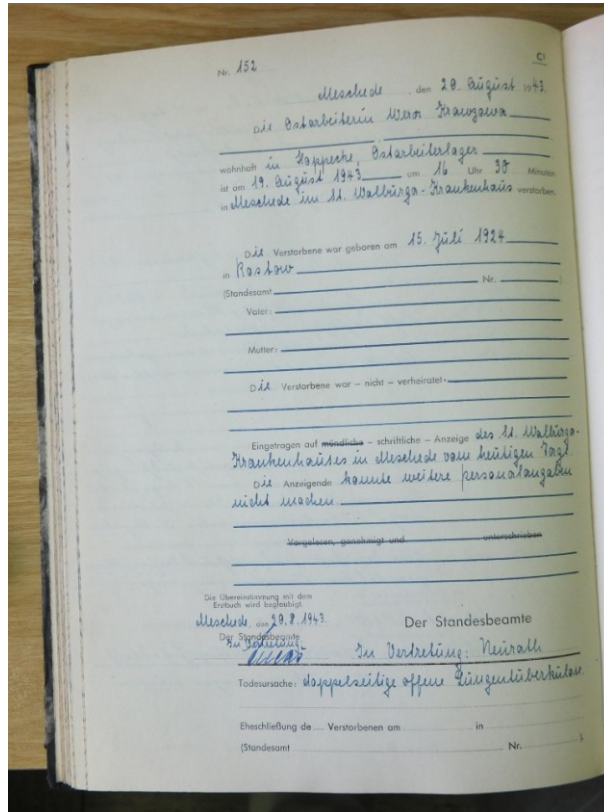 Nr. 152
C1
Meschede, den 20. August 1943.
Die Ostarbeiterin Wera
wohnhaft in Hoppecke, Ostarbeiterlager
ist am 19. August 1943 um 16 Uhr 30 Minuten
in Meschede im St. Walburga-Krankenhaus verstorben.
Die Verstorbene war geboren am 15. Juli 1924
in Rostow
(Standesamt Nr. )
Vater:
Mutter:
Die Verstorbene war – nicht – verheiratet
Eingetragen auf mündliche – schriftliche – Anzeige des St. Walburga-
Krankenhauses in Meschede vom heutigen Tage.
Die Anzeigende konnte weitere personalangaben
nicht machen
Vorgelesen, genehmigt und unterschrieben
Die Übereinstimmung mit dem
Erstbuch wird beglaubigt.
Meschede, den 20.8.1943.
Der Standesbeamte
Der Standesbeamte
In Vertretung
In Vertretung: Neurath
Todesursache: doppelseitige offene Lungentüberkulose.
Eheschließung de Verstorbenen am in
(Standesamt Nr. ).